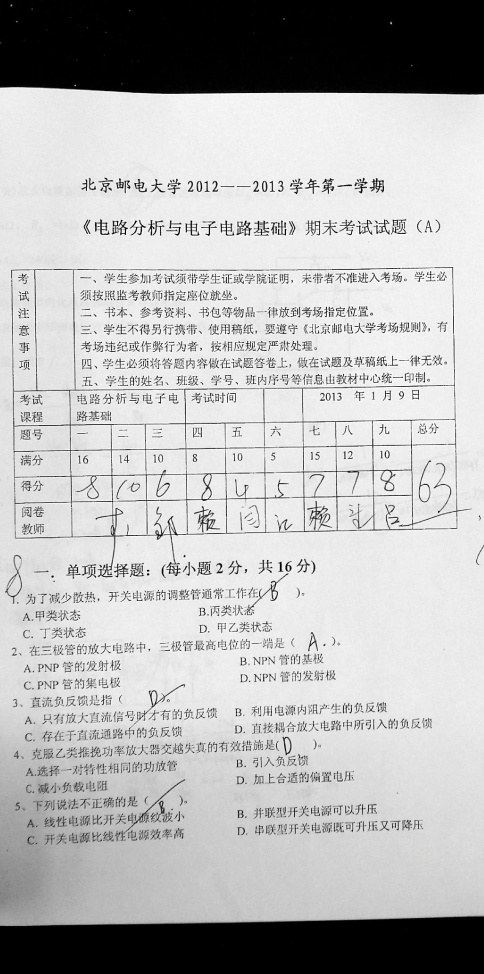 北京邮电大学 2012——2013 学年第一学期
《电路分析与电子电路基础》期末考试试题（A）
考试注意事项
一、学生参加考试须带学生证或学院证明，未带者不准进入考场。学生必
须按照监考教师指定座位就坐。
二、书本、参考资料、书包等物品一律放到考场指定位置。
三、学生不得另行携带、使用稿纸，要遵守《北京邮电大学考场规则》，有
考场违纪或作弊行为者，按相应规定严肃处理。
四、学生必须将答题内容做在试题答卷上，做在试题及草稿纸上一律无效。
五、学生的姓名、班级、学号、班内序号等信息由教材中心统一印制。
考试课程 电路分析与电子电路基础 考试时间 2013 年 1 月 9 日
题号 一 二 三 四 五 六 七 八 九 总分
满分 16 14 10 8 10 5 15 12 10
得分 8 10 6 8 4 5 7 7 8 63
阅卷教师 邹 赖 闫 江 赖 吕
8 一．单项选择题：(每小题 2 分，共 16 分)
1. 为了减少散热，开关电源的调整管通常工作在( B )。
A.甲类状态 B.丙类状态
C. 丁类状态 D. 甲乙类状态
2、在三极管的放大电路中，三极管最高电位的一端是（ A . ）。
A. PNP 管的发射极 B. NPN 管的基极
C. PNP 管的集电极 D. NPN 管的发射极
3、直流负反馈是指（ D ）。
A. 只有放大直流信号时才有的负反馈 B. 利用电源内阻产生的负反馈
C. 存在于直流通路中的负反馈 D. 直接耦合放大电路中所引入的负反馈
4、克服乙类推挽功率放大器交越失真的有效措施是( D )。
A.选择一对特性相同的功放管 B. 引入负反馈
C. 减小负载电阻 D. 加上合适的偏置电压
5、下列说法不正确的是（ B . ）。
A. 线性电源比开关电源纹波小 B. 并联型开关电源可以升压
C. 开关电源比线性电源效率高 D. 串联型开关电源既可升压又可降压